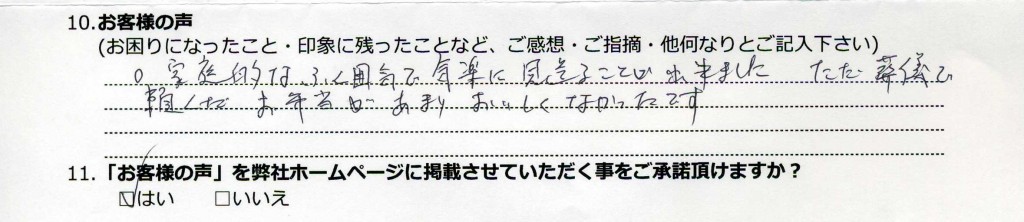 10.お客様の声
(お困りになったこと・印象に残ったことなど、ご感想・ご指摘・他何なりとご記入下さい)
○ 家庭的なふん囲気で気楽に見送ることが出来ました ただ 葬儀で
頼んだ お弁当が あまり おいしくなかったです
11.「お客様の声」を弊社ホームページに掲載させていただく事をご承諾頂けますか?
☑はい □いいえ